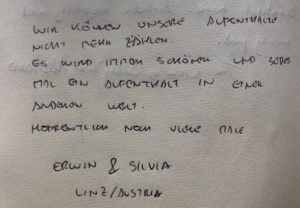 WIR KÖNNEN UNSERE AUFENTHALTE
NICHT MEHR ZÄHLEN
ES WIRD IMMER SCHÖNER UND JEDES
MAL EIN AUFENTHALT IN EINER
ANDEREN WELT.
HOFFENTLICH NOCH VIELE MALE
ERWIN & SILVIA
LINZ/AUSTRIA